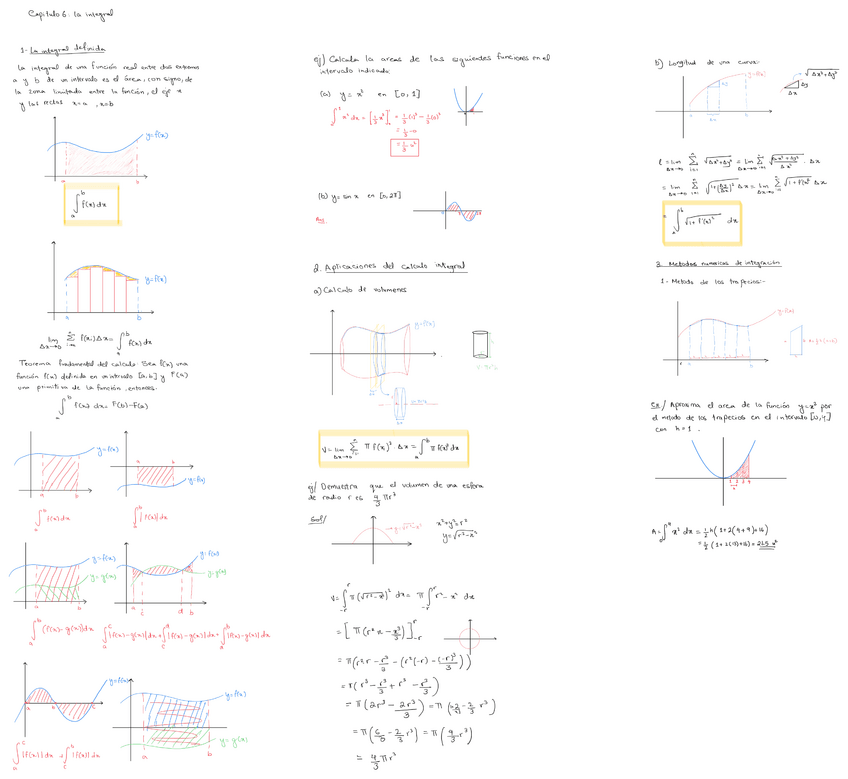 Capitulo 6: La integral
1- La integral definida
La integral de una función real entre dos extremos
a y b de un intervalo es el área, con signo, de
la zona limitada entre la función, el eje x
y las rectas x=a , x=b
y=f(x)
a b
∫_a^b f(x) dx
y=f(x)
a b
lim Δx→0 Σ f(xi) Δx = ∫_a^b f(x) dx
Teorema fundamental del calculo. Sea f(x) una
función f(x) definida en un intervalo [a,b] y F(x)
una primitiva de la función, entonces.
∫_a^b f(x) dx = F(b)-F(a)
y=f(x)
a b
a b
y=f(x)
∫_a^b f(x) dx
∫_a^b |f(x)| dx
y=f(x)
y=g(x)
a b
y=f(x)
y=g(x)
a c d b
∫_a^b (f(x)-g(x)) dx
y=f(x)
a b c
y=f(x)
y=g(x)
a b
ej/ Calcula la areas de las siguientes funciones en el
intervalo indicado:
(a) y = x² en [0, 1]
= 1/3 - 0
= 1/3 u²
(b) y = sin x en [0, 2π]
2. Aplicaciones del calculo integral
a) Calculo de volumenes
y=f(x)
V = lim Δx→0 Σ π f(x)² Δx = ∫_a^b π f(x)² dx
ej/ Demuestra que el volumen de una esfera
de radio r es 4/3 πr³
Sol/
y=√r²-x²
x²+y²=r²
y=√r²-x²
V = ∫_-r^r π(√r²-x²)² dx = π ∫_-r^r r²-x² dx
= [π(r²x - x³/3)]_-r^r
= π(r²r - r³/3 - (r²(-r) - (-r)³/3))
= π(r³ - r³/3 + r³ - r³/3)
= π(4/3 r³)
= 4/3 πr³
b) Longitud de una curva:
y=f(x)
√Δx²+Δy²
Δy
Δx
∫_a^b √1+f'(x)² dx
3. Metodos numericos de integración
1- Metodo de los trapecios:-
y=f(x)
Ex/ Aproxima el area de la función y=x² por
el metodo de los trapecios en el intervalo
con h=1 .
1 2 3 4